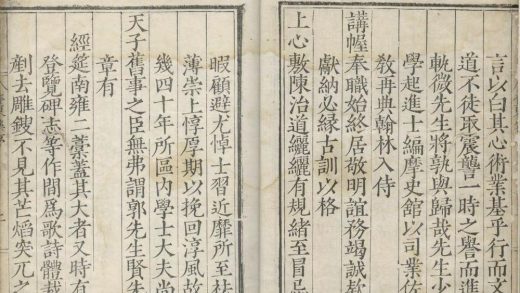 言以白其心術業基乎行而文
道不徒取震讋一時之譽而進
軌微先生將孰與歸哉先生少
學起進士編摩史館以司業佐
敎再典翰林入侍
講幄奉職始終居敬明誼務竭誠款
獻納必緣古訓以格
上心敷陳治道纚纚有規緒至冒忌
暇顧避尤悼士習近靡所至袪
薄崇上惇厚期以挽回淳風故
幾四十年所區内學士大夫尚
天子舊事之臣無弗謂郭先生賢
章有
經筵南雍二藁蓋其大者又時有
登覽碑志等作間爲歌詩體裁
剷去雕鎪不見其芒焰突兀之